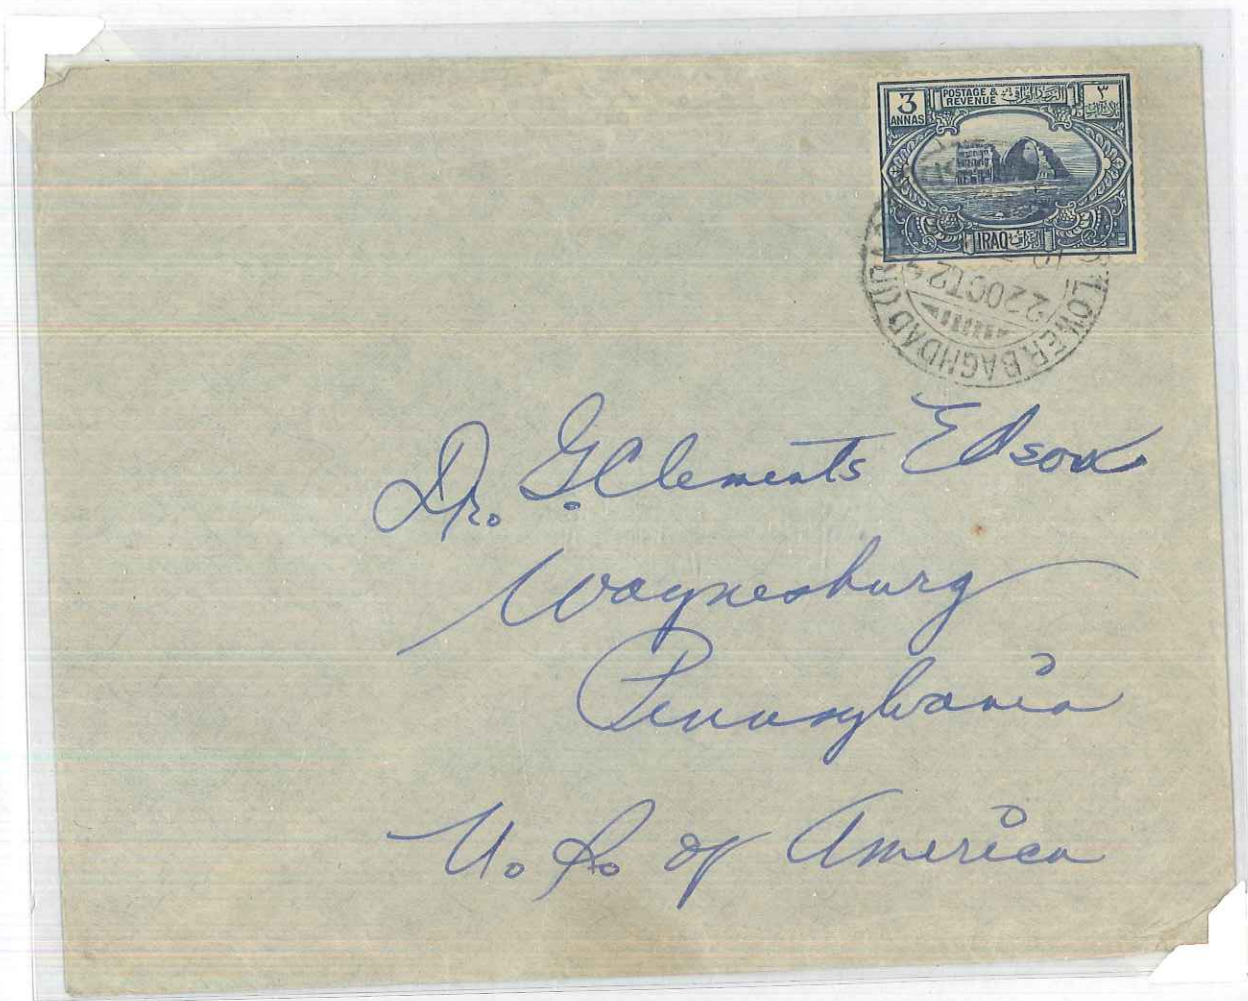 3 ANNAS
POSTAGE & REVENUE
٣
IRAQ العراق
LOWER BAGHDAD (IRAQ)
22 OCT 2
Dr. G. Clements Edson
Waynesburg
Pennsylvania
U. S. of America